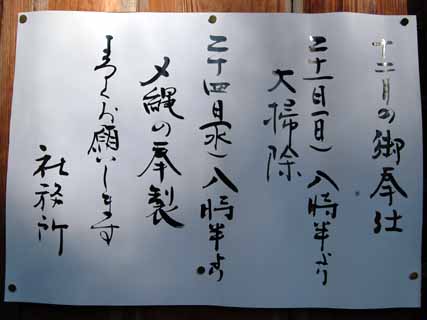 十二月の御奉仕
二十一日(日)八時半より
大掃除
二十四日(水)八時半より
〆縄の奉製
よろしくお願いします
社務所